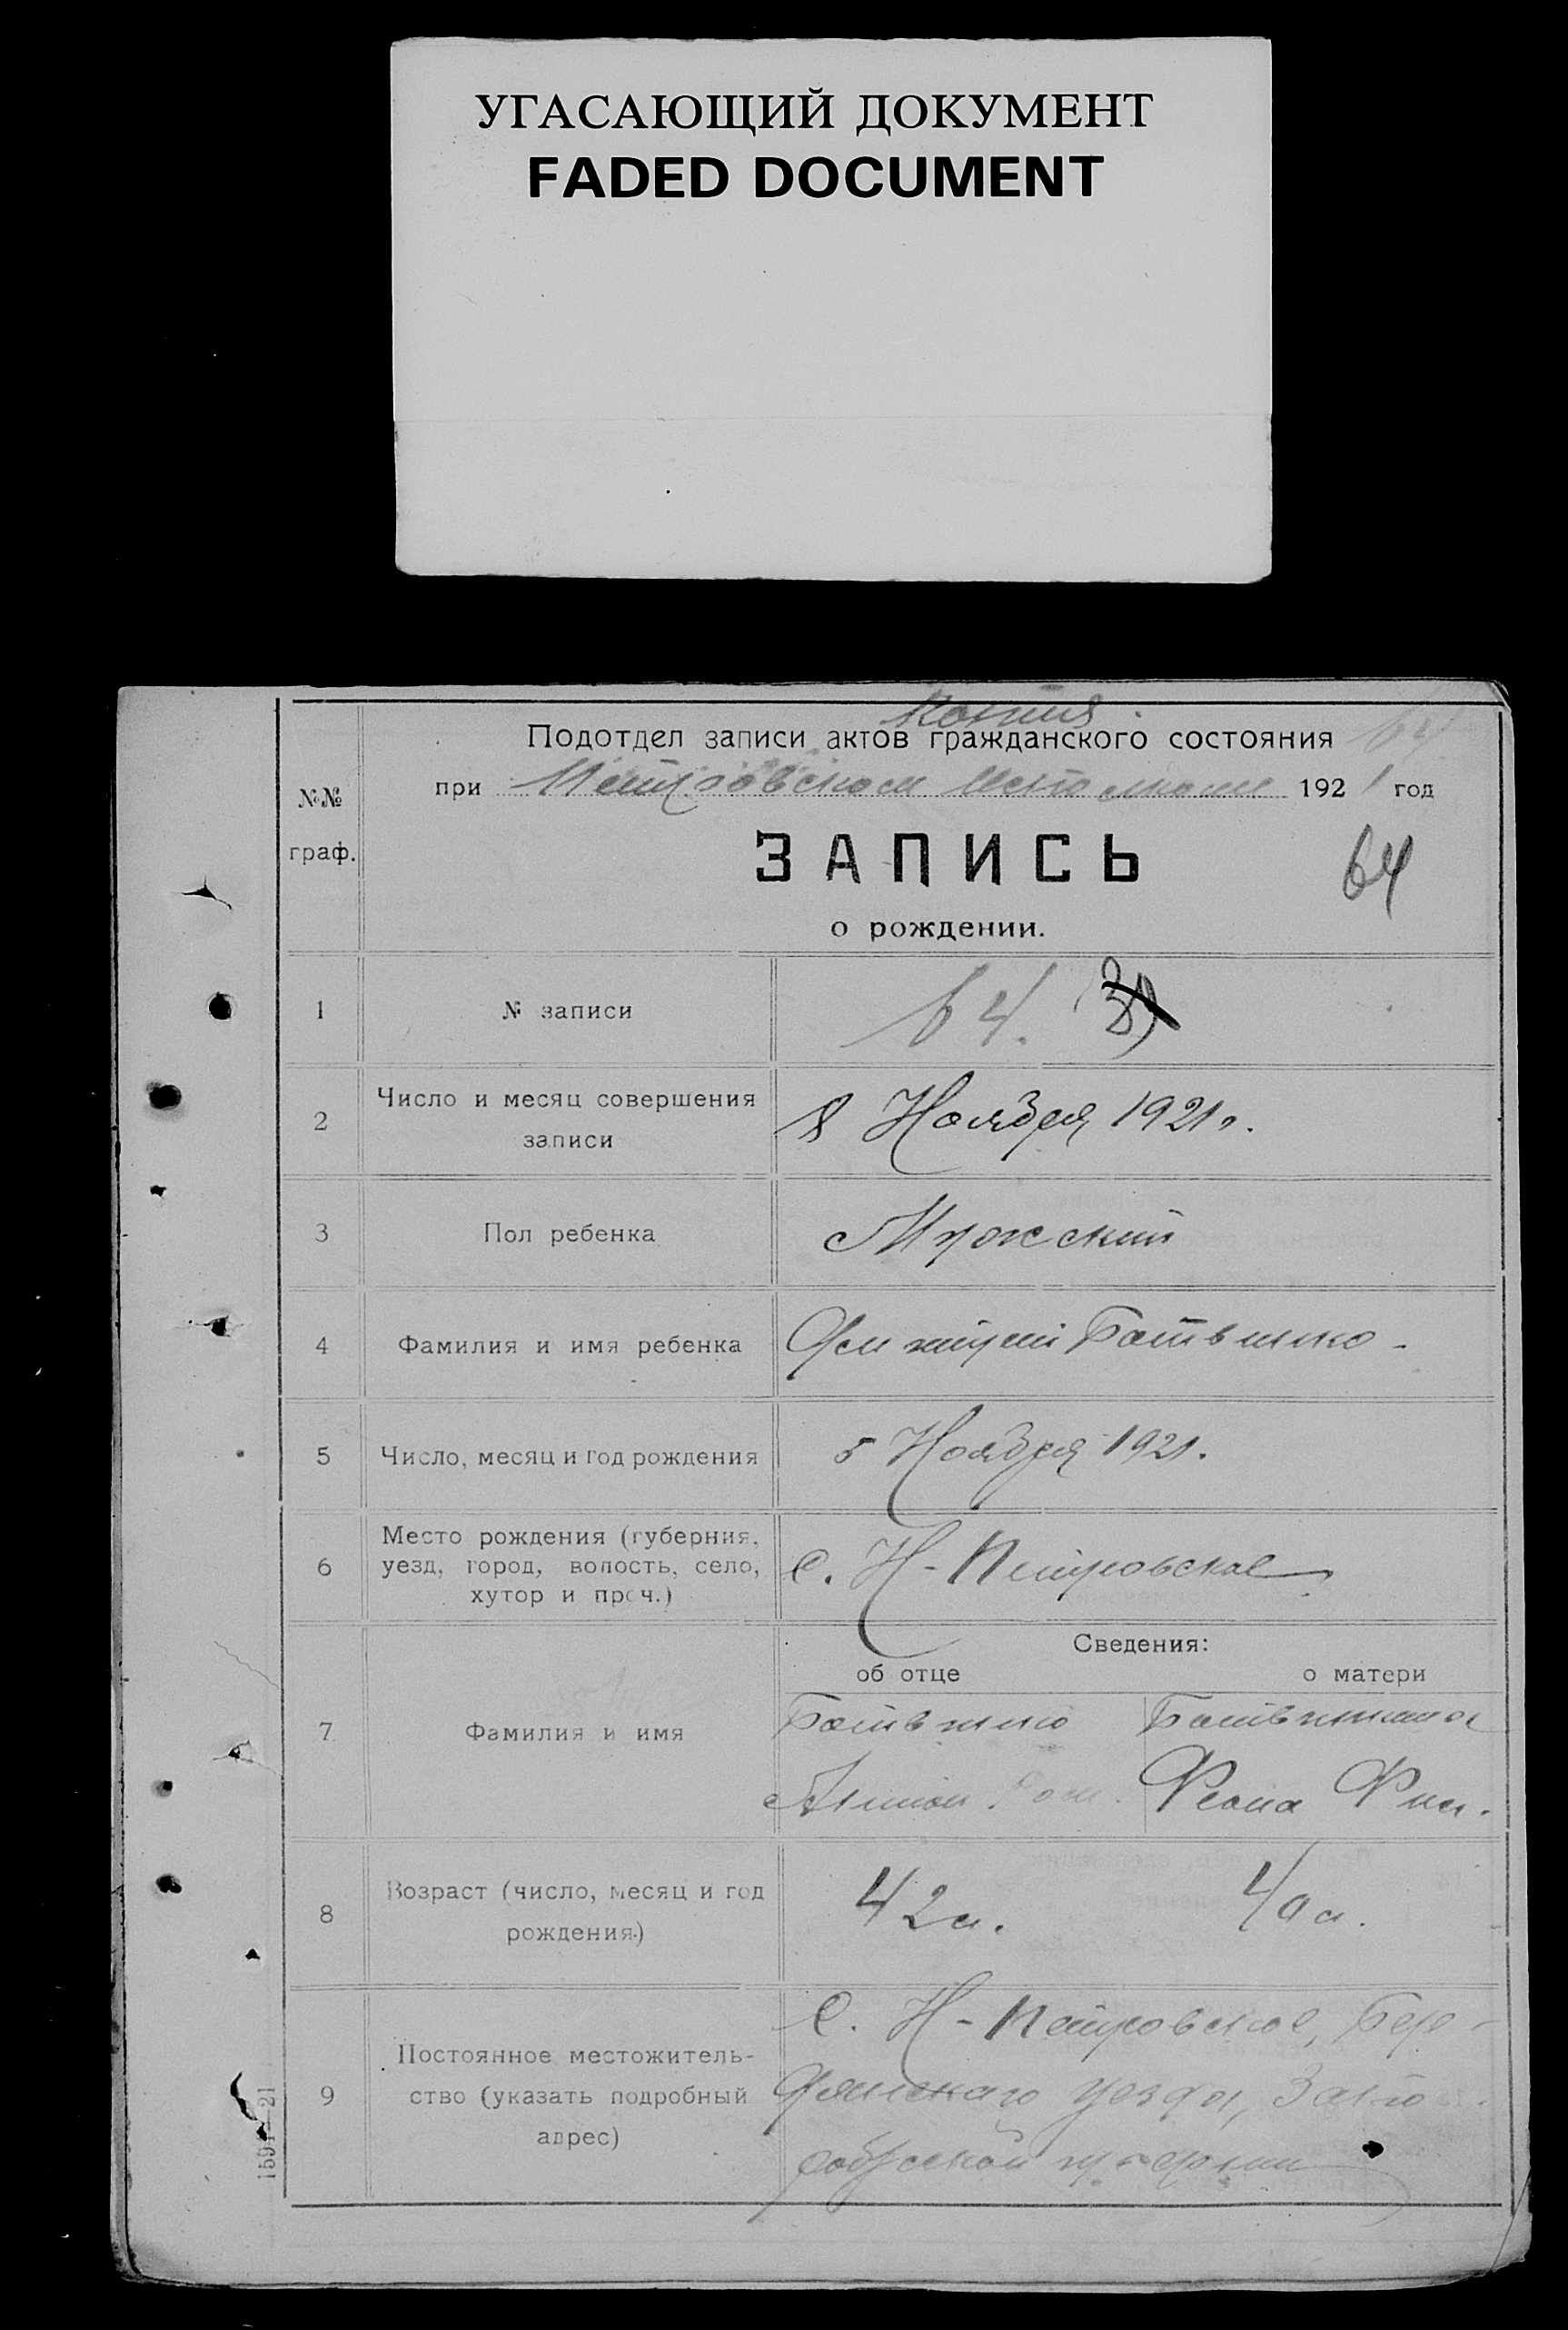 УГАСАЮЩИЙ ДОКУМЕНТ
FADED DOCUMENT
Копия
Подотдел записи актов гражданского состояния
при Петровском 1921 год
№№
граф.
ЗАПИСЬ
64
о рождении.
1 № записи 64.
2 Число и месяц совершения
записи
8 Ноября 1921 г.
3 Пол ребенка Мужской
4 Фамилия и имя ребенка Дмитрий Ботвинко
5 Число, месяц и год рождения 5 Ноября 1921.
6 Место рождения (губерния,
уезд, город, волость, село,
хутор и проч.)
С. Н-Петровское
Сведения:
об отце о матери
7 Фамилия и имя
Ботвинко
Антон
Феона Фил.
8 Возраст (число, месяц и год
рождения.)
42 л. 40 л.
9 Постоянное местожитель-
ство (указать подробный
адрес)
С. Н-Петровское, Бер-
дянского уезда, Запо-
губернии
1591—21